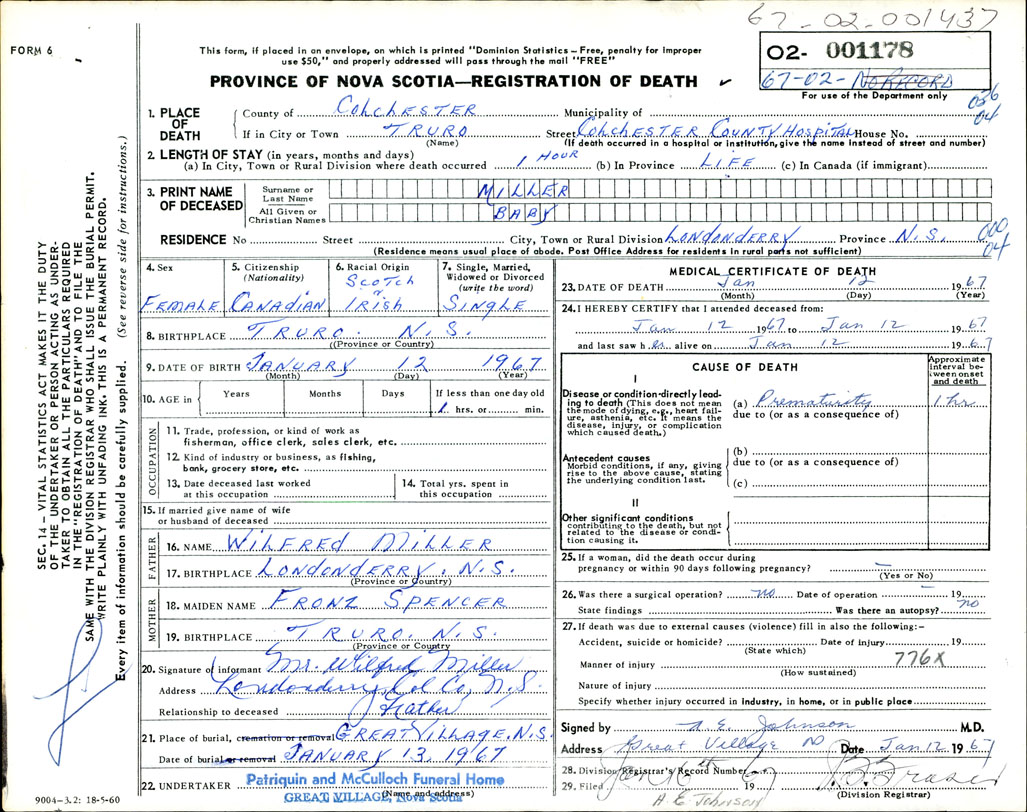 67-02-001437
FORM 6
This form, if placed in an envelope, on which is printed "Dominion Statistics – Free, penalty for improper
use $50," and properly addressed will pass through the mail "FREE"
02- 001178
67-02- NO RECORD
For use of the Department only
PROVINCE OF NOVA SCOTIA—REGISTRATION OF DEATH
036
04
1. PLACE OF DEATH
County of COLCHESTER Municipality of
If in City or Town TRURO Street COLCHESTER COUNTY HOSPITAL House No.
(Name) (If death occurred in a hospital or institution, give the name instead of street and number)
2. LENGTH OF STAY (in years, months and days)
(a) In City, Town or Rural Division where death occurred 1 HOUR (b) In Province LIFE (c) In Canada (if immigrant)
3. PRINT NAME OF DECEASED
Surname or Last Name MILLER
All Given or Christian Names BABY
RESIDENCE No Street City, Town or Rural Division LONDONDERRY Province N.S.
000
04
(Residence means usual place of abode. Post Office Address for residents in rural parts not sufficient)
4. Sex FEMALE
5. Citizenship (Nationality) CANADIAN
6. Racial Origin SCOTCH IRISH
7. Single, Married, Widowed or Divorced (write the word) SINGLE
8. BIRTHPLACE TRURO. N.S.
(Province or Country)
9. DATE OF BIRTH JANUARY 12 1967
(Month) (Day) (Year)
10. AGE in Years Months Days If less than one day old
1 hrs. or min.
OCCUPATION
11. Trade, profession, or kind of work as
fisherman, office clerk, sales clerk, etc.
12. Kind of industry or business, as fishing,
bank, grocery store, etc.
13. Date deceased last worked
at this occupation
14. Total yrs. spent in
this occupation
15. If married give name of wife
or husband of deceased
FATHER
16. NAME WILFRED MILLER
17. BIRTHPLACE LONDONDERRY. N.S.
(Province or Country)
MOTHER
18. MAIDEN NAME FRONZ SPENCER
19. BIRTHPLACE TRURO. N.S.
(Province or Country)
20. Signature of informant Mr. Wilfred Miller
Address Londonderry, Col Co, N.S.
Relationship to deceased Father
21. Place of burial, cremation or removal GREAT VILLAGE, N.S.
Date of burial or removal JANUARY 13, 1967
22. UNDERTAKER Patriquin and McCulloch Funeral Home
(Name and address)
GREAT VILLAGE, Nova Scotia
MEDICAL CERTIFICATE OF DEATH
23. DATE OF DEATH Jan 12 1967
(Month) (Day) (Year)
24. I HEREBY CERTIFY that I attended deceased from:
Jan 12 1967 to Jan 12 1967
and last saw her alive on Jan 12 1967
CAUSE OF DEATH
Approximate interval between onset and death
I
Disease or condition directly leading to death (This does not mean the mode of dying, e.g., heart failure, asthenia, etc. It means the disease, injury, or complication which caused death.)
(a) Prematurity 1 hr
due to (or as a consequence of)
Antecedent causes
Morbid conditions, if any, giving rise to the above cause, stating the underlying condition last.
(b)
due to (or as a consequence of)
(c)
II
Other significant conditions
contributing to the death, but not related to the disease or condition causing it.
25. If a woman, did the death occur during
pregnancy or within 90 days following pregnancy? –
(Yes or No)
26. Was there a surgical operation? no Date of operation – 19
State findings Was there an autopsy? no
27. If death was due to external causes (violence) fill in also the following:–
Accident, suicide or homicide? Date of injury 19
(State which)
776X
Manner of injury
(How sustained)
Nature of injury
Specify whether injury occurred in industry, in home, or in public place
Signed by A. E. Johnson M.D.
Address Great Village NS Date Jan 12 1967
28. Division Registrar's Record Number
29. Filed Jan 19
(Division Registrar)
A E Johnson
SEC. 14 – VITAL STATISTICS ACT MAKES IT THE DUTY
OF THE UNDERTAKER OR PERSON ACTING AS UNDER-
TAKER TO OBTAIN ALL THE PARTICULARS REQUIRED
IN THE "REGISTRATION OF DEATH" AND TO FILE THE
SAME WITH THE DIVISION REGISTRAR WHO SHALL ISSUE THE BURIAL PERMIT.
WRITE PLAINLY WITH UNFADING INK. THIS IS A PERMANENT RECORD.
Every item of information should be carefully supplied. (See reverse side for instructions.)
9004-3.2: 18-5-60